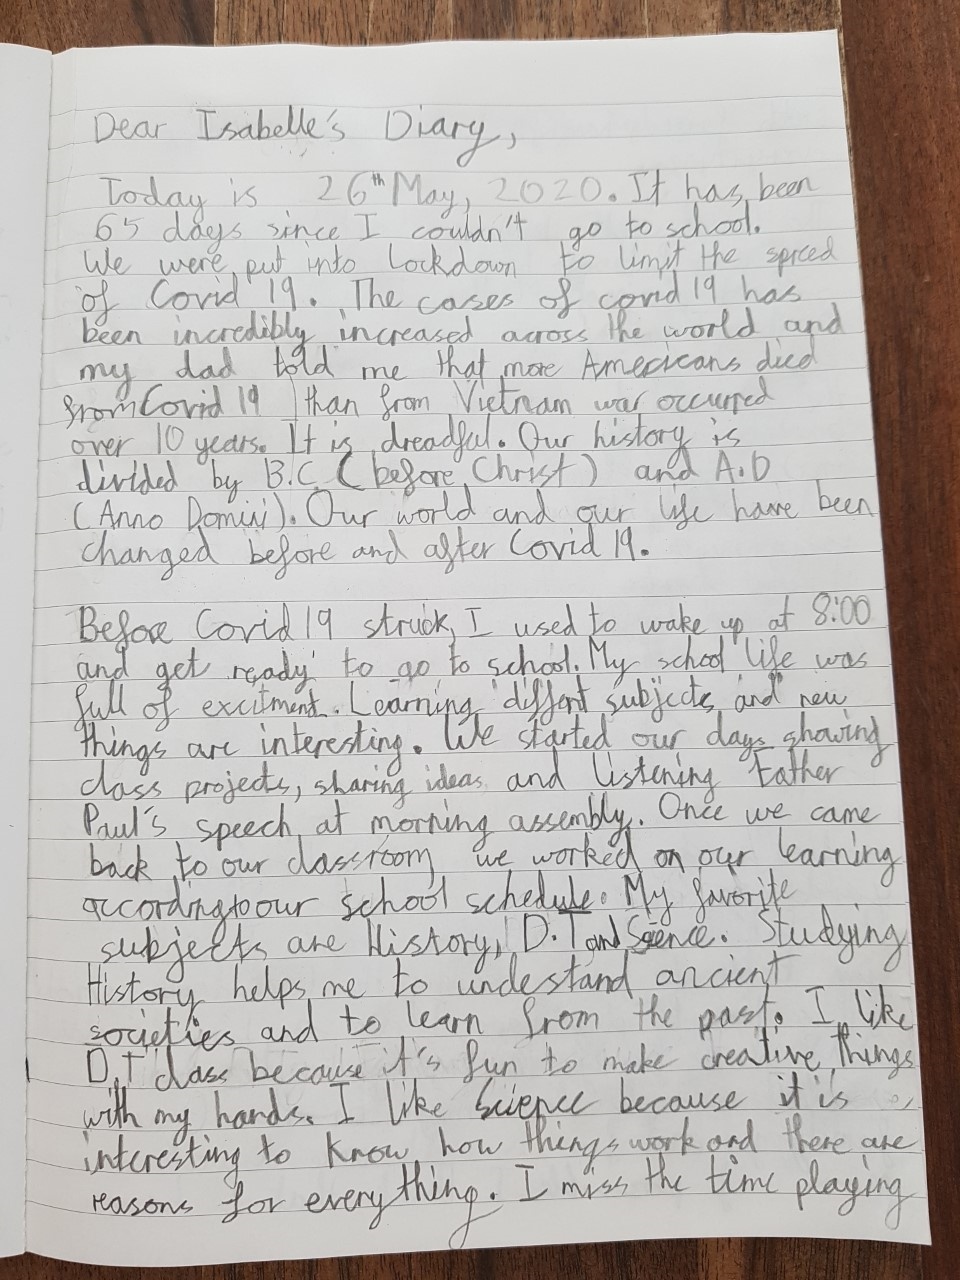 Dear Isabelle's Diary,
Today is 26th May, 2020. It has been
65 days since I couldn't go to school.
We were put into lockdown to limit the spreed
of Covid 19. The cases of covid 19 has
been incredibly increased across the world and
my dad told me that more Americans died
from Covid 19 than from Vietnam war occurred
over 10 years. It is dreadful. Our history is
divided by B.C (before Christ) and A.D
(Anno Domini). Our world and our life have been
changed before and after Covid 19.
Before Covid 19 struck, I used to wake up at 8:00
and get ready to go to school. My school life was
full of excitment. Learning diffent subjects and new
things are interesting. We started our days showing
class projects, sharing ideas and listening Father
Paul's speech at morning assembly. Once we came
back to our classroom we worked on our learning
according to our school schedule. My favorite
subjects are History, D.T and Science. Studying
History helps me to understand ancient
societies and to learn from the past. I like
D.T class because it's fun to make creative things
with my hands. I like Science because it is
interesting to know how things work and there are
reasons for everything. I miss the time playing